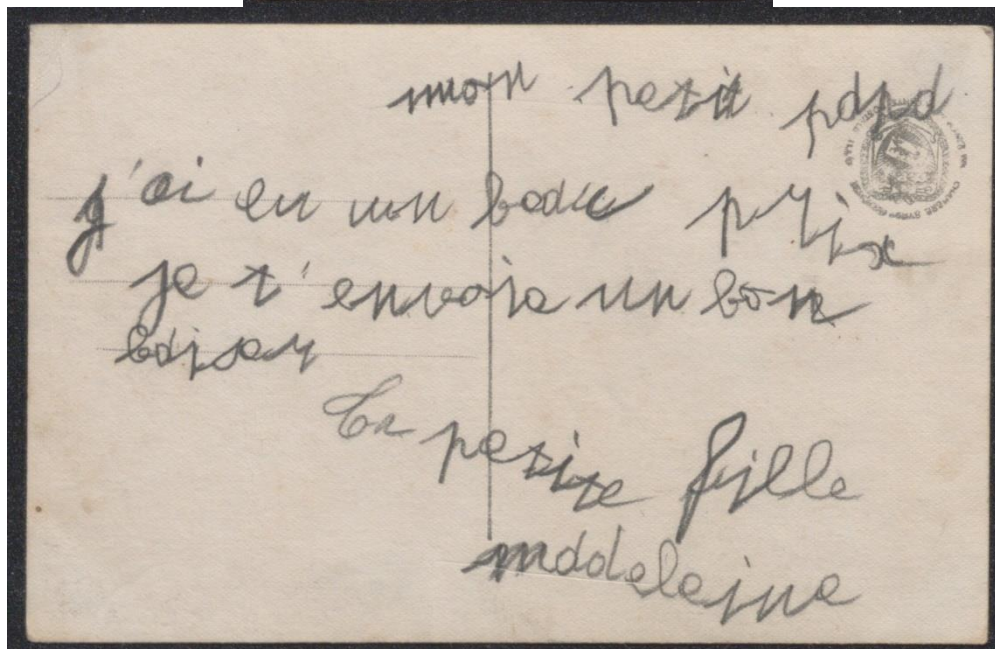 mon petit papa
j'ai eu un beau prix
je t'envoie un bon
baiser
Ta petite fille
maddeleine